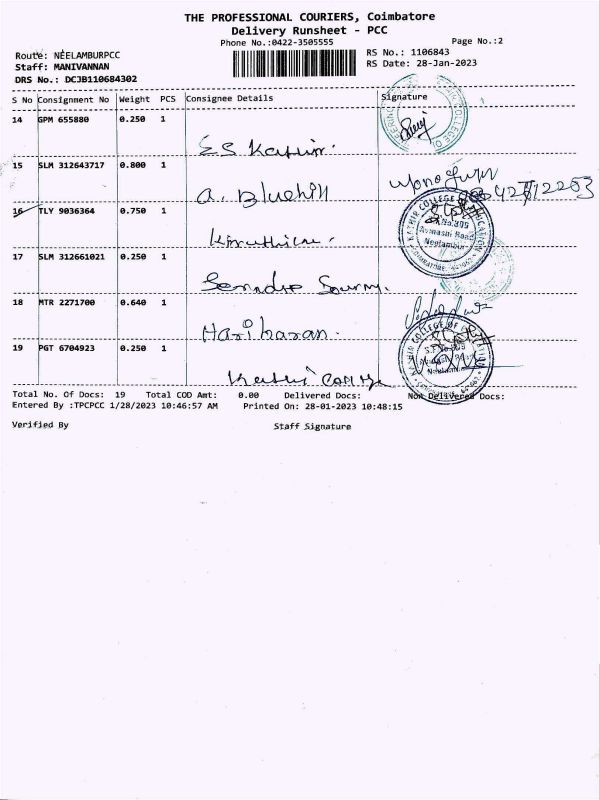 THE PROFESSIONAL COURIERS, Coimbatore
Delivery Runsheet - PCC
Phone No.:0422-3505555
Page No.:2
Route: NEELAMBURPCC
RS No.: 1106843
Staff: MANIVANNAN
RS Date: 28-Jan-2023
DRS No.: DCJB110684302
S No Consignment No Weight PCS Consignee Details Signature
14 GPM 655880 0.250 1
15 SLM 312643717 0.800 1
16 TLY 9036364 0.750 1
17 SLM 312661021 0.250 1
18 MTR 2271700 0.640 1
Hariharan.
19 PGT 6704923 0.250 1
Total No. Of Docs: 19 Total COD Amt: 0.00 Delivered Docs: Non Delivered Docs:
Entered By :TPCPCC 1/28/2023 10:46:57 AM Printed On: 28-01-2023 10:48:15
Verified By Staff Signature